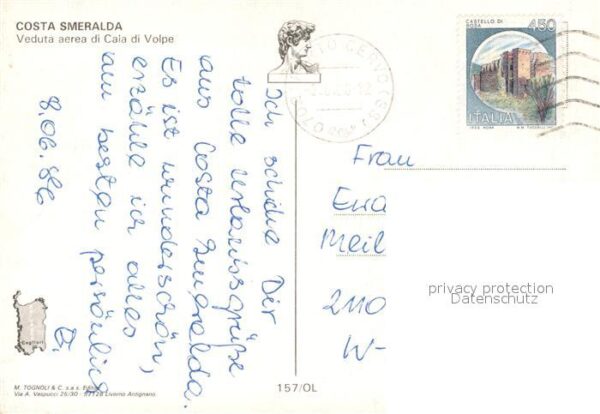 COSTA SMERALDA
Veduta aerea di Cala di Volpe
Ich schicke Dir
tolle Urlaubsgrüße
aus Costa Smeralda.
Es ist wunderschön,
erzähle ich alles
am besten persönlich
8.06.86
M. TOGNOLI & C. s.a.s. Edit
Via A. Vespucci 26/30 - 57128 Livorno Antignano
Cagliari
157/OL
PORTO CERVO (SS)
07020
CASTELLO DI
ROSA
450
ITALIA
Frau
Eva
Meil
2110
W-
privacy protection
Datenschutz